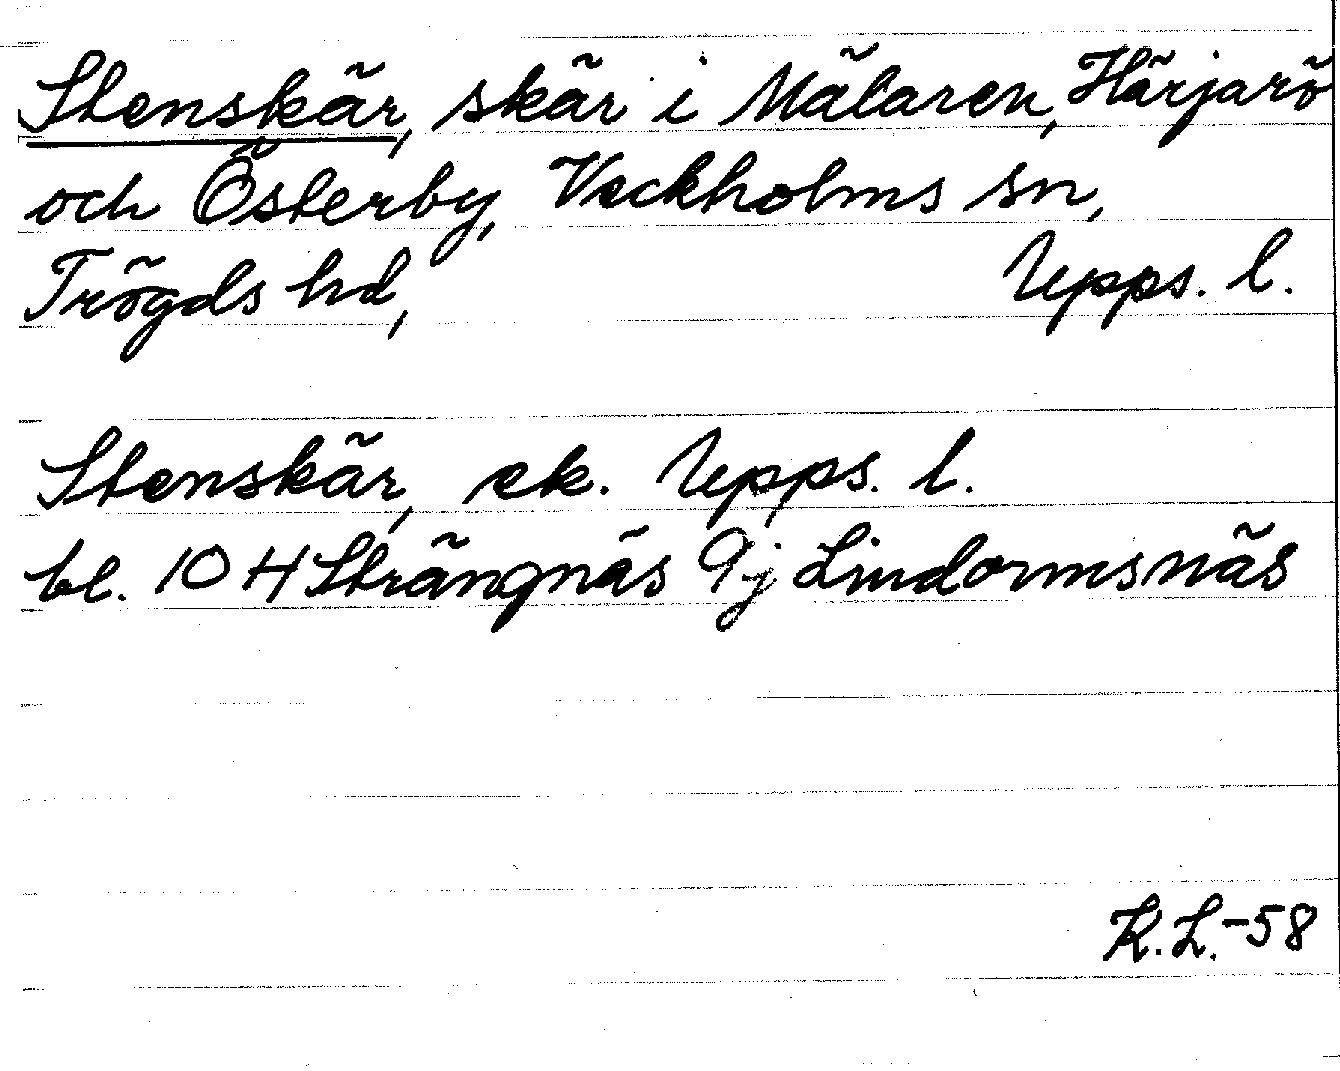 Stenskär, skär i Mälaren, Härjarö
och Österby, Veckholms sn,
Trögds hd, Upps. l.
Stenskär, ek. Upps. l.
bl. 10 H Strängnäs 9j Lindormsnäs
K.L.-58